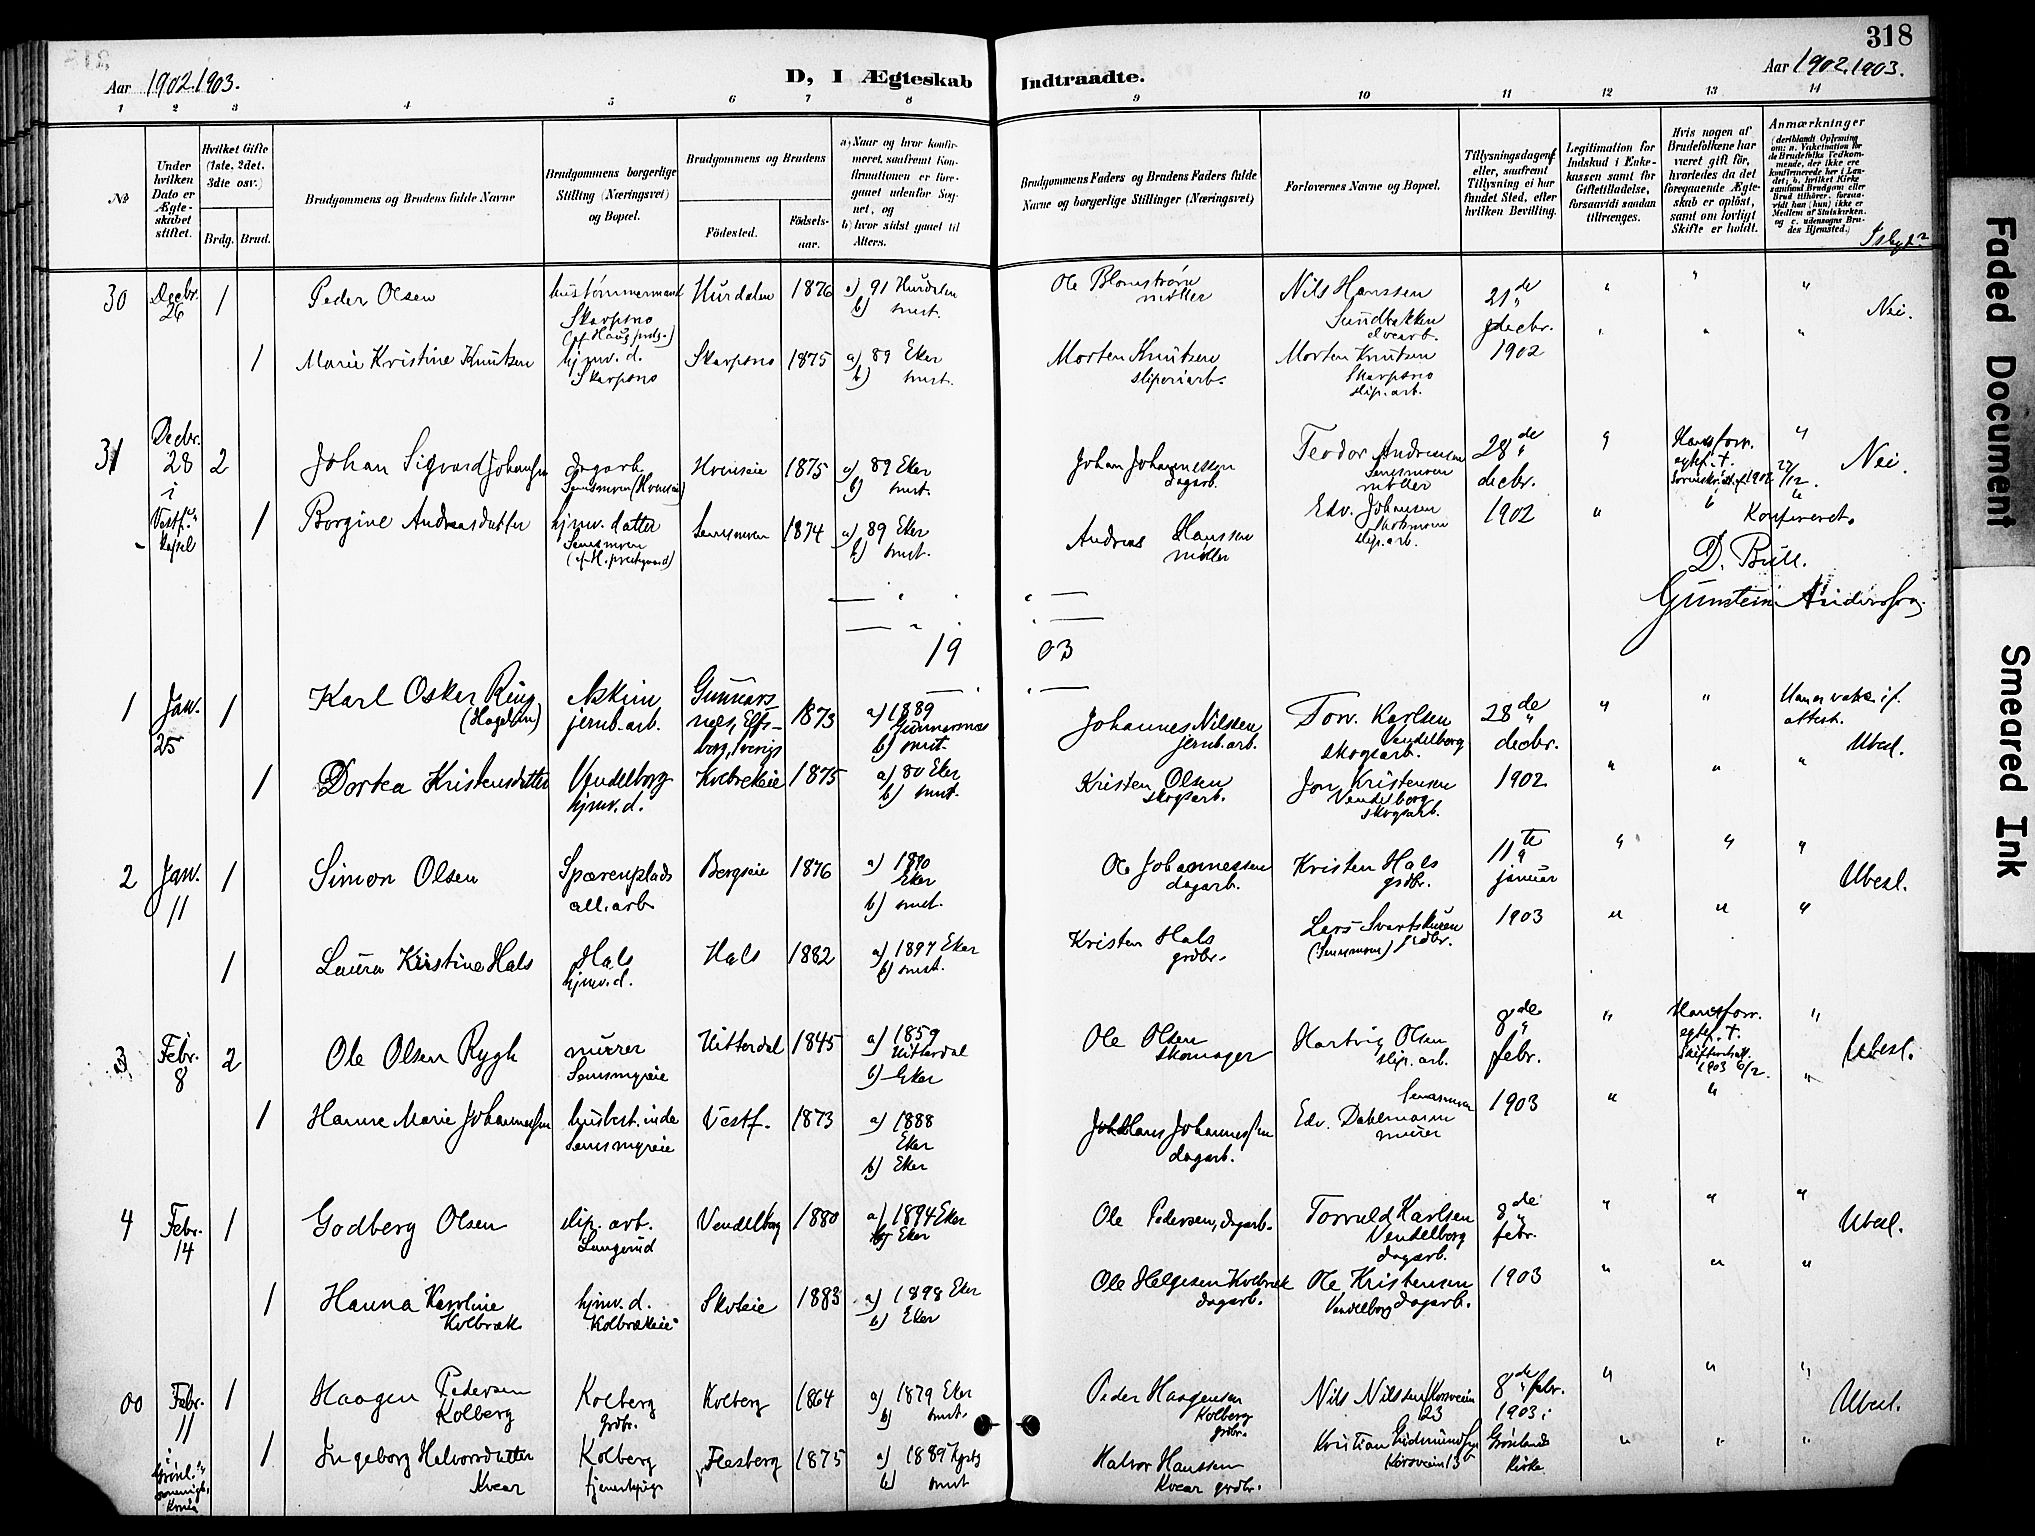 318
Aar 1902.1903.
D, I Ægteskab Indtraadte.
Aar 1902.1903.
1 2 3 4 5 6 7 8 9 10 11 12 13 14
No
Under hvilken Dato er Ægteskabet stiftet.
Hvilket Gifte (1ste, 2det, 3die osv.)
Brdg. Brud.
Brudgommens og Brudens fulde Navne
Brudgommens borgerlige Stilling (Næringsvei) og Bopæl.
Brudgommens og Brudens
Fødested. Fødselsaar.
a) Naar og hvor konfirmeret, saafremt Konfirmationen er foregaaet udenfor Sognet, og
b) hvor sidst gaaet til Alters.
Brudgommens Faders og Brudens Faders fulde Navne og borgerlige Stillinger (Næringsvei)
Forlovernes Navne og Bopæl.
Tillysningsdagene, eller, saafremt Tillysning ei har fundet Sted, efter hvilken Bevilling.
Legitimation for Indskud i Enkekassen samt for Giftetilladelse, forsaavidt saadan tiltrænges.
Hvis nogen af Brudefolkene har været gift før, hvorledes da det foregaaende Ægteskab er opløst, samt om lovligt Skifte er holdt.
Anmærkninger (deriblandt Oplysning om: a. Vaksination for de Brudefolks Vedkommende, der ikke ere konfirmerede her i Landet; b. hvilket Kirkesamfund Brudgom eller Brud tilhører, forsaavidt han (hun) ikke er Medlem af Statskirken, og c. udensogns Brudes Hjemsted.)
30 Decbr. 26 1 Peder Olsen hustømmermand Skarpsno Hurdalen 1876 a) 91 Hurdalen b) smst. Ole Blomstrøm møller Nils Hanssen Sundbakken 21de decbr. " " " Nei.
1 Marie Kristine Knutsen hjmv. d. Skarpsno Skarpsno 1875 a) 89 Eker b) smst. Morten Knutsen sliperiarb. Morten Knutsen Skarpsno slip. arb. 1902 " " "
31 Decbr. 28 i Vestf. kapel 2 Johan Sigvard Johansen dagarb. Hvenseie 1875 a) 89 Eker b) smst. Johan Johannessen dagarb. Teodor Andresen møller 28de decbr. " Hans forr. egtef. † " Nei.
1 Borgine Andreasdatter hjmv. datter Semsmoen 1874 a) 89 Eker b) smst. Andreas Hanssen møller Edv. Johansen slip. arb. 1902 " " Konfereret.
D. Bull.
Gunstein Anderssen
1903
1 Jan. 25 1 Karl Oskar Ring Askim jernb. arb. Gunnarsnæs, Elfsborg, Sverige 1873 a) 1889 Gunnarsnæs b) smst. Johannes Nilssen jernb. arb. Torv. Karlsen Vendelborg skogsarb. 28de decbr. " " attest. Ubesl.
1 Dortea Kristensdatter Vendelborg hjmv. d. Kolbrekeie 1875 a) 80 Eker b) smst. Kristen Olsen skogsarb. Jon Kristensen Vendelborg skogsarb. 1902 " " "
2 Jan. 11 1 Simon Olsen Sparenplads all. arb. Bergseie 1876 a) 1890 Eker b) smst. Ole Johannessen dagarb. Kristen Hals grdbr. 11te januar " " " Ubesl.
1 Laura Kristine Hals Hals hjmv. d. Hals 1882 a) 1897 Eker b) smst. Kristen Hals grdbr. Lars Svartskuren (Semsmoen) grdbr. 1903 " " "
3 Febr. 8 2 Ole Olsen Rygh murer Semsmyreie Hitterdal 1845 a) 1859 Hitterdal b) Eker Ole Olsen skomager Hartvig Olsen slip. arb. 8de febr. " Hans forr. egtef. † " Ubesl.
1 Hanne Marie Johannessen husbest. inde Semsmyreie Vestf. 1873 a) 1888 Eker b) Eker Hans Johannessen dagarb. Edv. Dahlmann murer Semsmoen 1903 " " "
4 Febr. 14 1 Godberg Olsen slip. arb. Langerud Vendelborg 1880 a) 1894 Eker b) Eker Ole Pedersen, dagarb. Torvald Karlsen Vendelborg dagarb. 8de febr. " " " Ubesl.
1 Hanna Karoline Kolbræk hjmv. d. Kolbrækeie Skoteie 1883 a) 1898 Eker b) Eker Ole Helgesen Kolbræk dagarb. Ole Kristensen Vendelborg dagarb. 1903 " " "
00 Febr. 11 1 Haagen Pedersen Kolberg Kolberg grdbr. Kolberg 1864 a) 1879 Eker b) smst. Peder Haagensen Kolberg grdbr. Nils Nilssen Korsveien 23 8de febr. 1903 i " " " Ubesl.
1 Ingeborg Halvorsdatter Kvear Kolberg tjenestepige Flesberg 1875 a) 1889 b) smst Halvor Hanssen Kvear grdbr. Kristian Korsveien 13 Grønlands kirke " " "
Faded Document
Smeared Ink